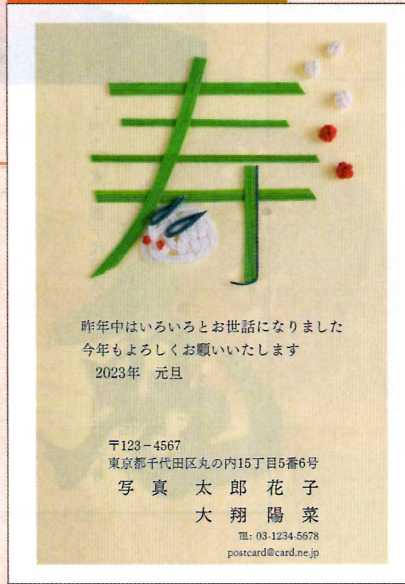 寿
昨年中はいろいろとお世話になりました
今年もよろしくお願いいたします
2023年 元旦
〒123-4567
東京都千代田区丸の内15丁目5番6号
写真 太郎 花子
大翔 陽菜
TEL: 03-1234-5678
postcard@card.ne.jp